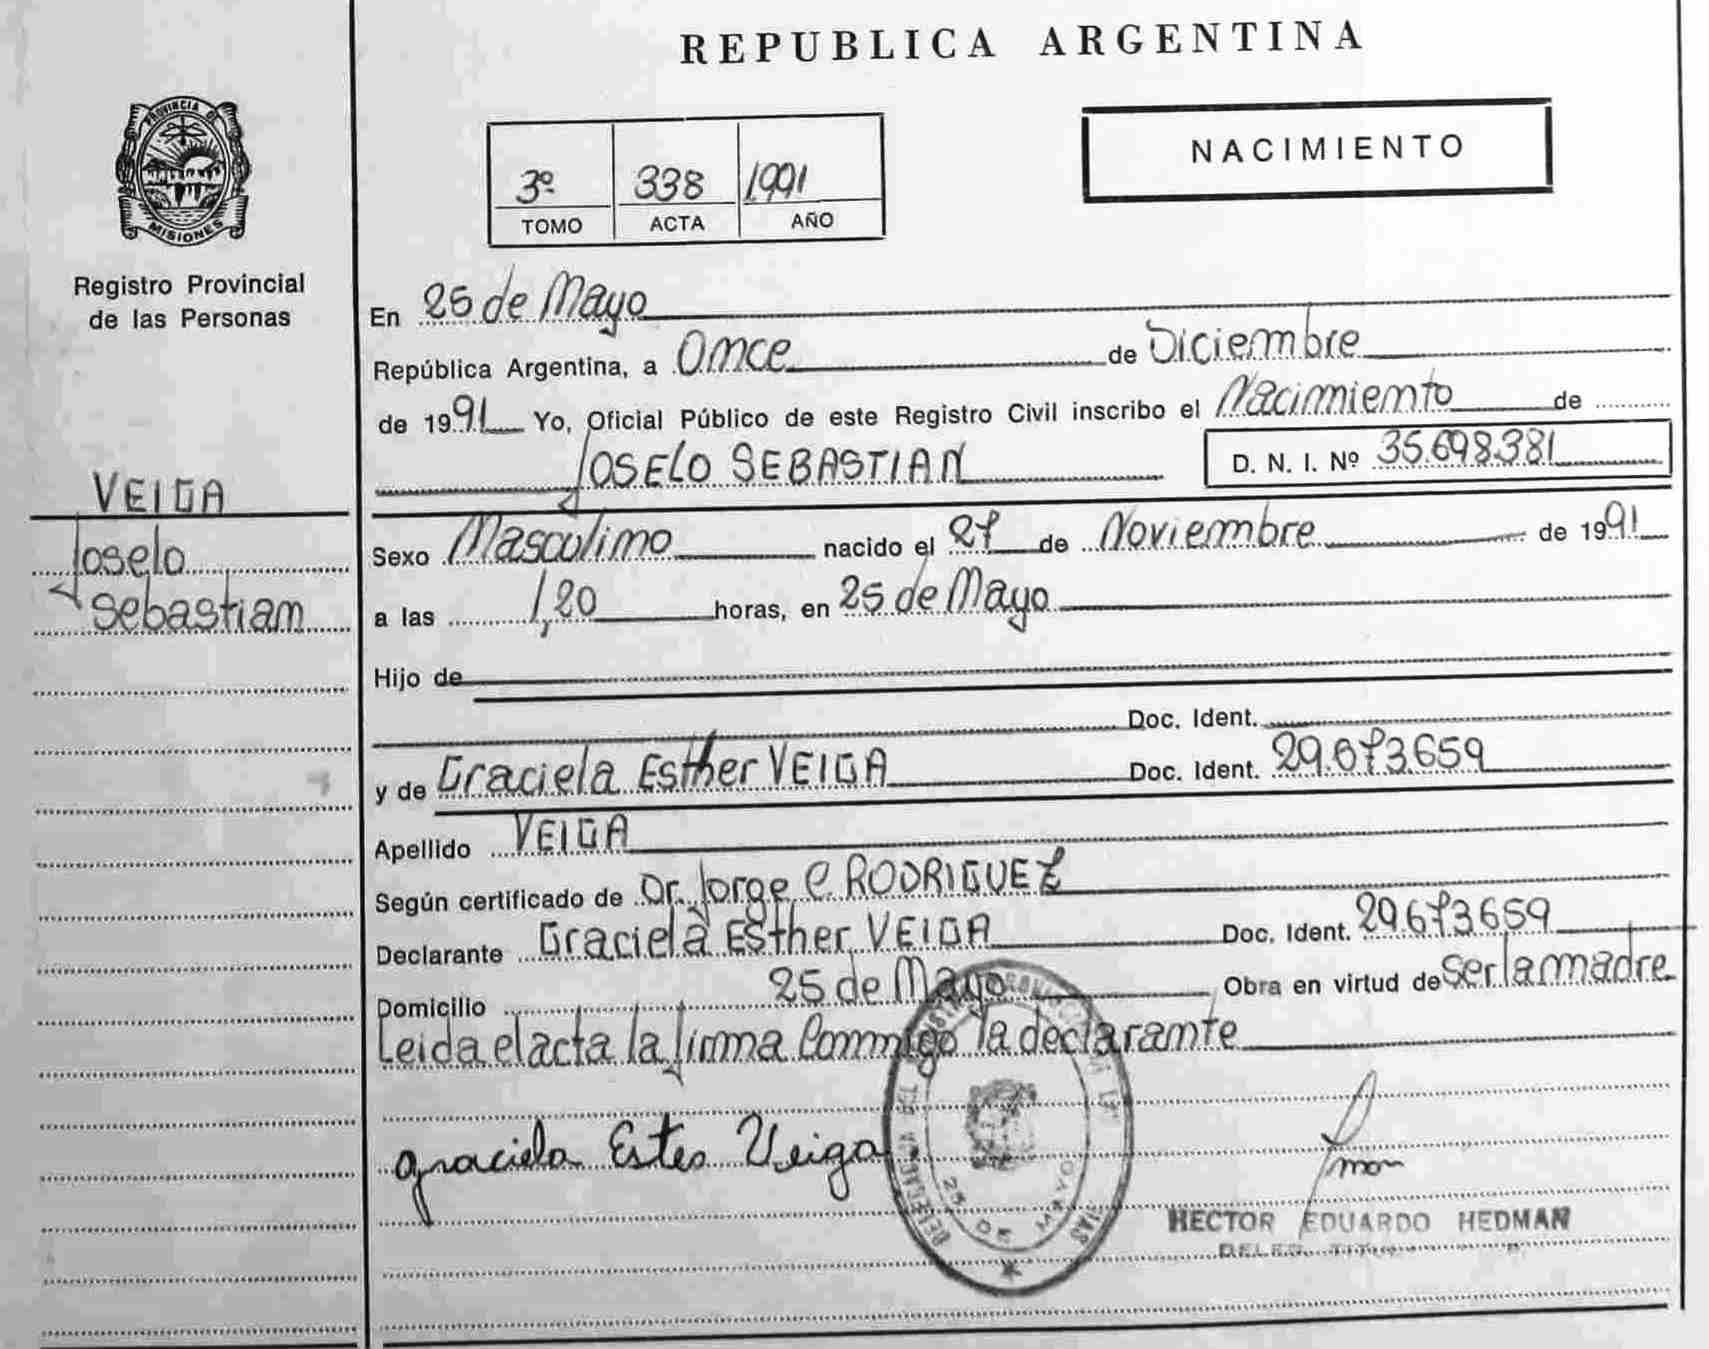 REPUBLICA ARGENTINA
PROVINCIA DE
MISIONES
Registro Provincial
de las Personas
NACIMIENTO
3º 338 1991
TOMO ACTA AÑO
VEIGA
Joselo
Sebastian
En 25 de Mayo
República Argentina, a Once de Diciembre
de 1991 Yo, Oficial Público de este Registro Civil inscribo el Nacimiento de
JOSELO SEBASTIAN D. N. I. Nº 35.698.381
Sexo Masculino nacido el 27 de Noviembre de 1991
a las 1,20 horas, en 25 de Mayo
Hijo de
Doc. Ident.
y de Graciela Esther VEIGA Doc. Ident. 29.673.659
Apellido VEIGA
Según certificado de Dr. Jorge C. RODRIGUEZ
Declarante Graciela Esther VEIGA Doc. Ident. 29.673.659
Domicilio 25 de Mayo Obra en virtud de ser la madre
Leida el acta la firma Conmigo la declarante
graciela Estes Veiga
25 DE MAYO
HECTOR EDUARDO HEDMAN